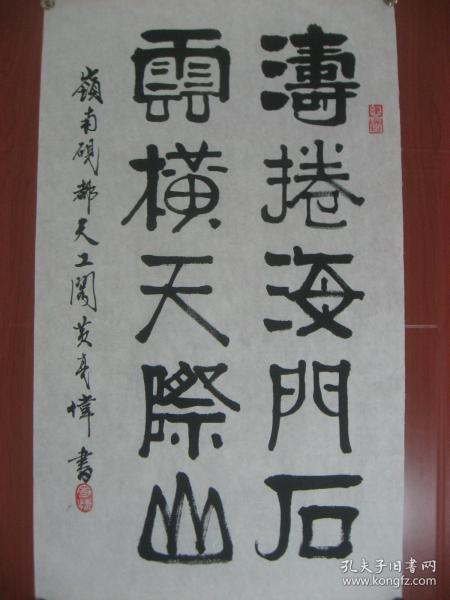 濤捲海門石
雲橫天際山
嶺南硯都天工閣黃亮煒書
孔夫子旧书网
www.kongfz.com